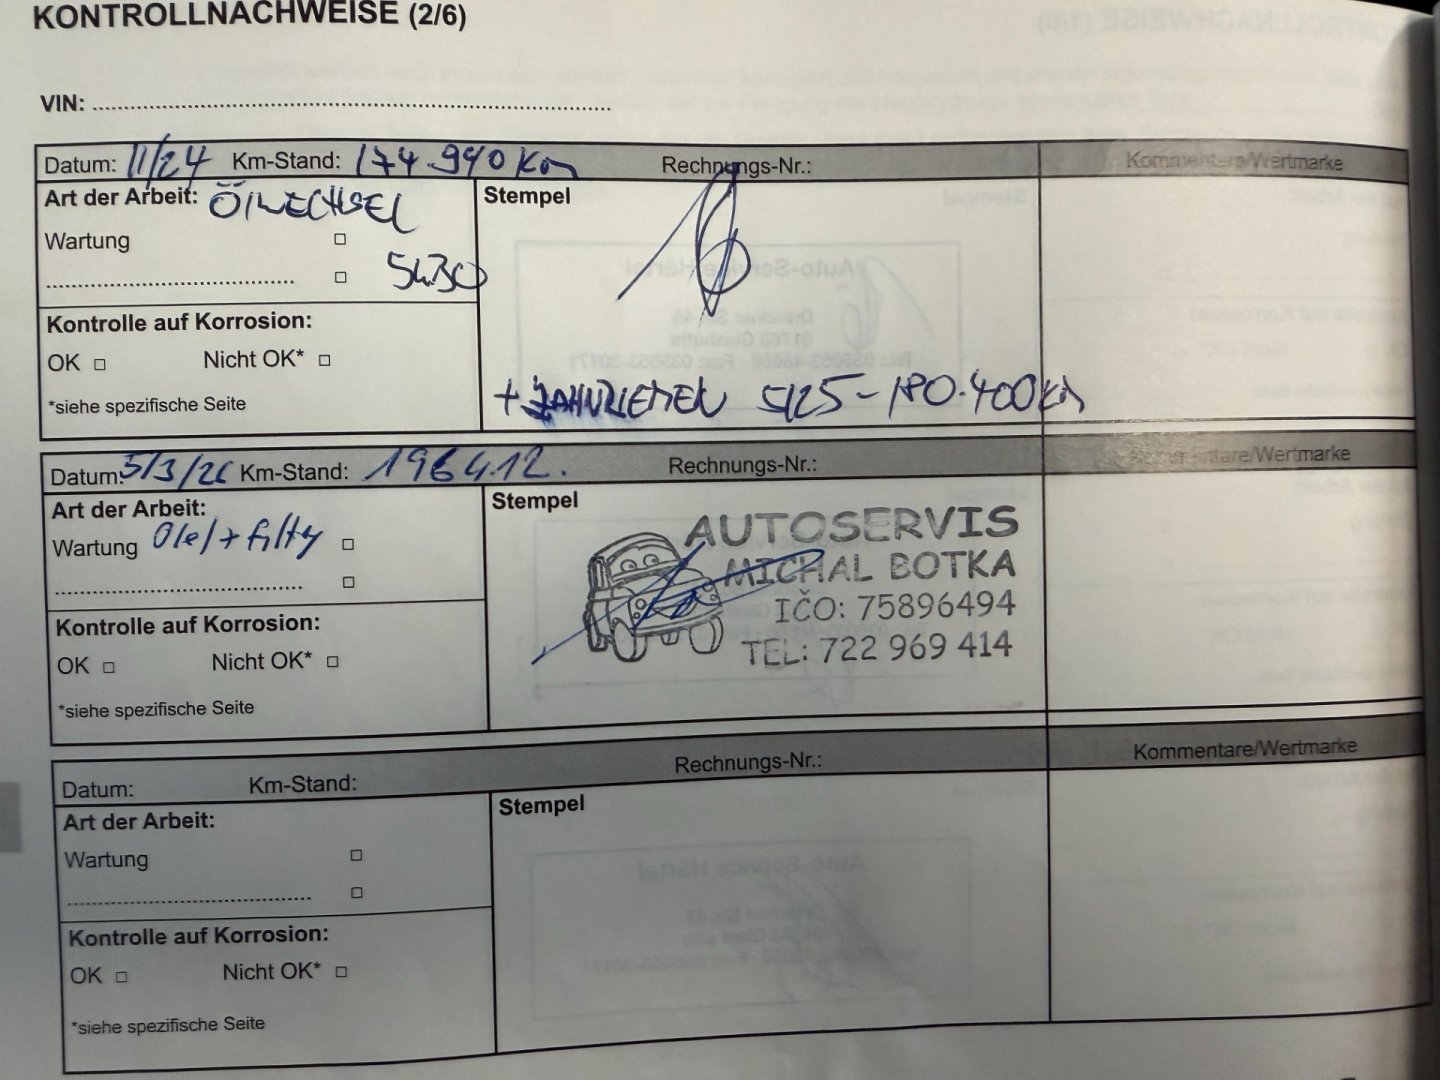 KONTROLLNACHWEISE (2/6)
VIN: ........................................................................
Datum: 11/24 Km-Stand: 174.990 Km Rechnungs-Nr.: Kommentare/Wertmarke
Art der Arbeit: ÖlWECHSEL Stempel
Wartung
5W30
Kontrolle auf Korrosion:
OK Nicht OK*
+ ZAHNRIEMEN 5/25 - 180.400 Km
*siehe spezifische Seite
Datum: 5/3/26 Km-Stand: 196412. Rechnungs-Nr.: Kommentare/Wertmarke
Art der Arbeit: Stempel
Wartung Olej + filtry
AUTOSERVIS
MICHAL BOTKA
IČO: 75896494
TEL: 722 969 414
Kontrolle auf Korrosion:
OK Nicht OK*
*siehe spezifische Seite
Datum: Km-Stand: Rechnungs-Nr.: Kommentare/Wertmarke
Art der Arbeit: Stempel
Wartung
Kontrolle auf Korrosion:
OK Nicht OK*
*siehe spezifische Seite